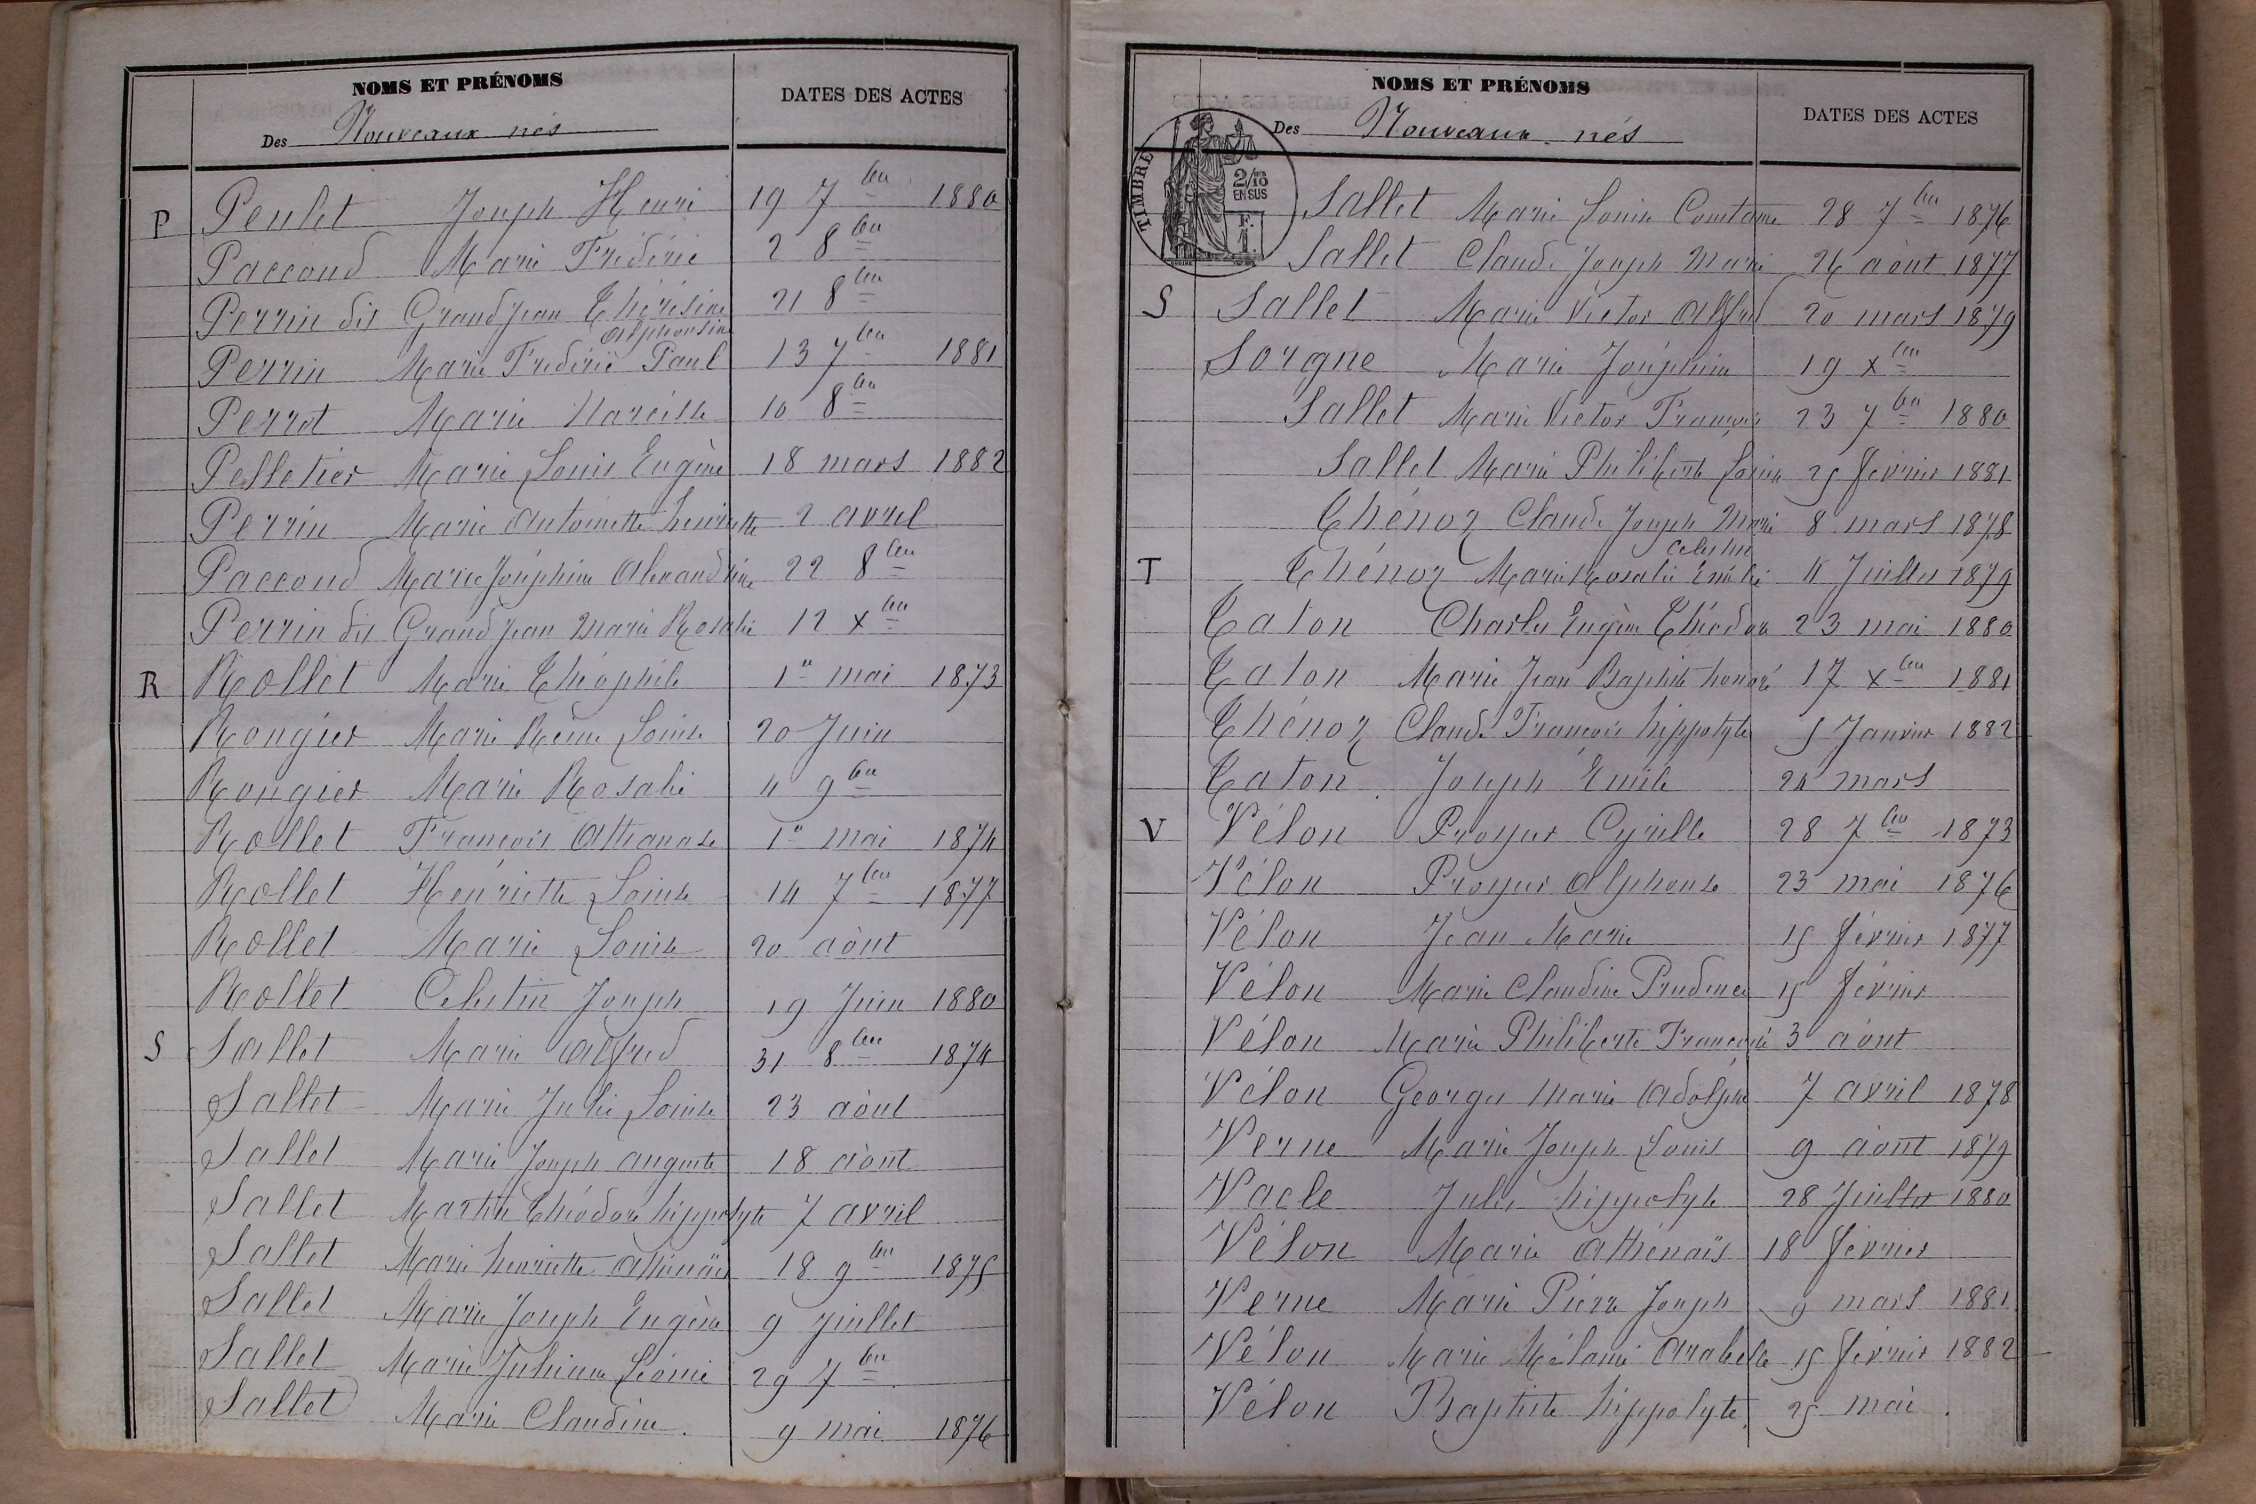 NOMS ET PRÉNOMS
DATES DES ACTES
Des Nouveaux nés
P Penlet Joseph Henri 19 7bre 1880
Paccoud Marie Frédéric 2 8bre
Perrin dit Grandjean Thérésine 21 8bre
Alphonsine
Perrin Marie Frédéric Paul 13 7bre 1881
Perrot Marie Narcisse 10 8bre
Pelletier Marie Louis Eugène 18 mars 1882
Perrin Marie Antoinette henriette 2 avril
Paccoud Marie Joséphine Alexandrine 22 8bre
Perrin dit Grandjean Marie Rosalie 12 xbre
R Rollet Marie Théophile 1er mai 1873
Rongier Marie Reine Louise 20 Juin
Rongier Marie Rosalie 4 9bre
Rollet François Athanase 1er mai 1874
Rollet Henriette Louise 14 7bre 1877
Rollet Marie Louise 20 août
Rollet Celestin Joseph 19 Juin 1880
S Sallet Marie Alfred 31 8bre 1874
Sallet Marie Julie Louise 23 août
Sallet Marie Joseph auguste 18 août
Sallet Martin Théodore hippolyte 7 avril
Sallet Marie henriette Athénaïs 18 9bre 1875
Sallet Marie Joseph Eugène 9 Juillet
Sallet Marie Julienne Léonie 29 7bre
Sallet Marie Claudine. 9 mai 1876
NOMS ET PRÉNOMS
DATES DES ACTES
Des Nouveaux nés
TIMBRE
2/10
EN SUS
F.
1.
Sallet Marie Louise Constance 28 7bre 1876
Sallet Claude Joseph Marie 26 août 1877
S Sallet Marie Victor Alfred 20 mars 1879
Sorgne Marie Joséphine 19 xbre
Sallet Marie Victor François 23 7bre 1880
Sallet Marie Philiberte Louise 25 février 1881
Thénoz Claude Joseph Marie 8 mars 1878
Celestine
T Thénoz Marie Rosalie Emélie 11 Juillet 1879
Taton Charles Eugène Théodore 23 mai 1880
Taton Marie Jean Baptiste honoré 17 xbre 1881
Thénoz Claude François hippolyte 5 Janvier 1882
Taton Joseph Emile 24 mars
V Vélon Prosper Cyrille 28 7bre 1873
Vélon Prosper Alphonse 23 mai 1876
Vélon Jean Marie 15 février 1877
Vélon Marie Claudine Prudence 15 février
Vélon Marie Philiberte Françoise 3 août
Vélon Georges Marie Adolphe 7 avril 1878
Verne Marie Joseph Louis 9 août 1879
Vacle Jules hippolyte 28 Juillet 1880
Vélon Marie Athénaïs 18 février
Verne Marie Pierre Joseph 9 mars 1881
Vélon Marie Mélanie Arabelle 15 février 1882
Vélon Baptiste hippolyte. 25 mai.